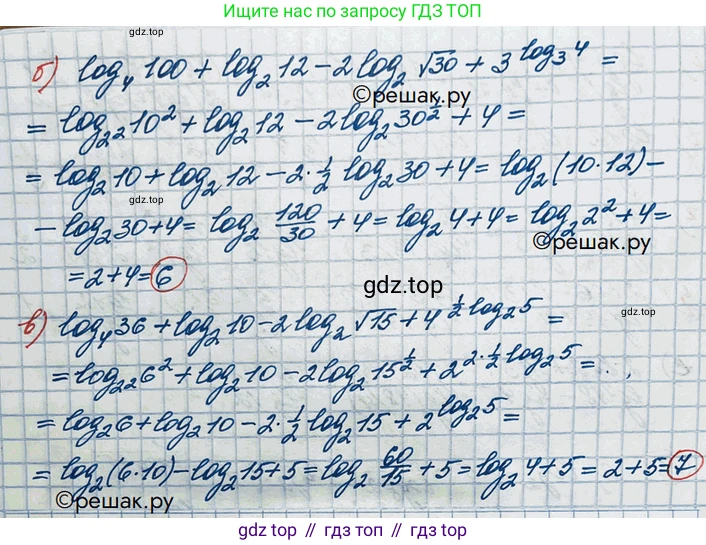 Ищите нас по запросу ГДЗ ТОП
gdz.top
б) log₄ 100 + log₂ 12 − 2 log₂ √30 + 3^(log₃ 4) =
©решак.ру
= log_(2²) 10² + log₂ 12 − 2 log₂ 30^(1/2) + 4 =
= log₂ 10 + log₂ 12 − 2 · 1/2 log₂ 30 + 4 = log₂ (10 · 12) −
gdz.top
− log₂ 30 + 4 = log₂ 120/30 + 4 = log₂ 4 + 4 = log₂ 2² + 4 =
©решак.ру
= 2 + 4 = 6
gdz.top
в) log₄ 36 + log₂ 10 − 2 log₂ √15 + 4^(1/2 log₂ 5) =
= log_(2²) 6² + log₂ 10 − 2 log₂ 15^(1/2) + 2^(2 · 1/2 log₂ 5) =
= log₂ 6 + log₂ 10 − 2 · 1/2 log₂ 15 + 2^(log₂ 5) =
= log₂ (6 · 10) − log₂ 15 + 5 = log₂ 60/15 + 5 = log₂ 4 + 5 = 2 + 5 = 7
©решак.ру
gdz top // гдз топ // gdz.top